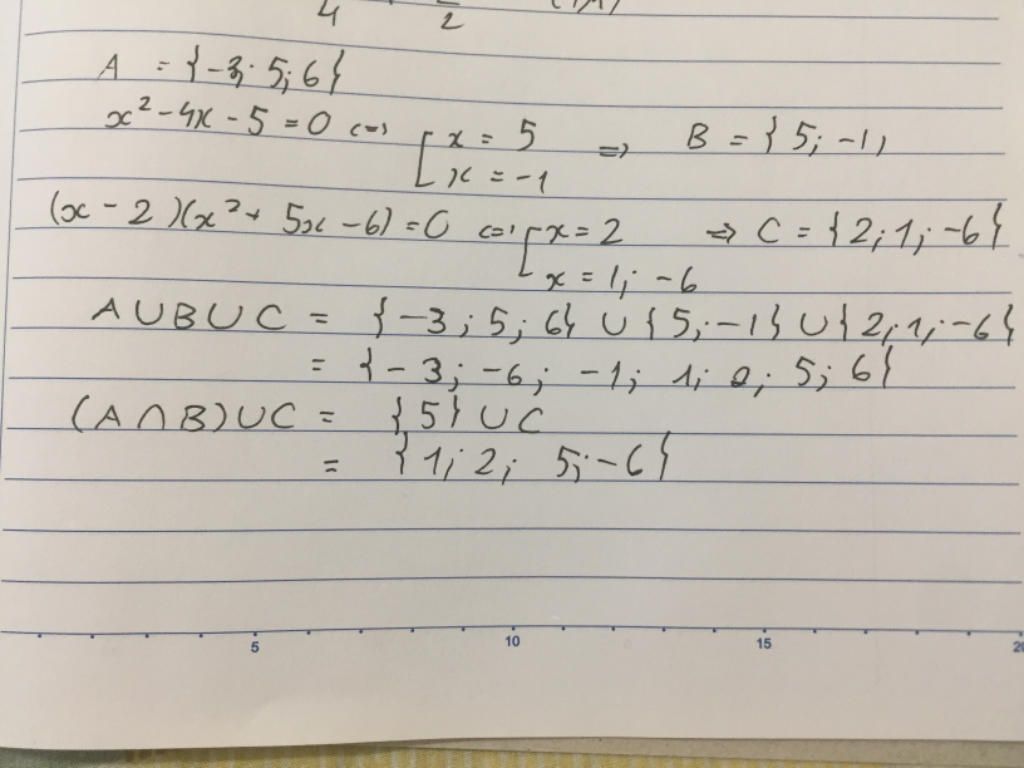 4 2
A = {-3; 5; 6}
x² - 4x - 5 = 0 <=> [ x = 5 => B = {5; -1,
x = -1
(x - 2)(x² + 5x - 6) = 0 <=> [ x = 2 => C = {2; 1; -6}
x = 1; -6
A ∪ B ∪ C = {-3; 5; 6} ∪ {5; -1} ∪ {2; 1; -6}
= {-3; -6; -1; 1; 2; 5; 6}
(A ∩ B) ∪ C = {5} ∪ C
= {1; 2; 5; -6}
5 10 15 20